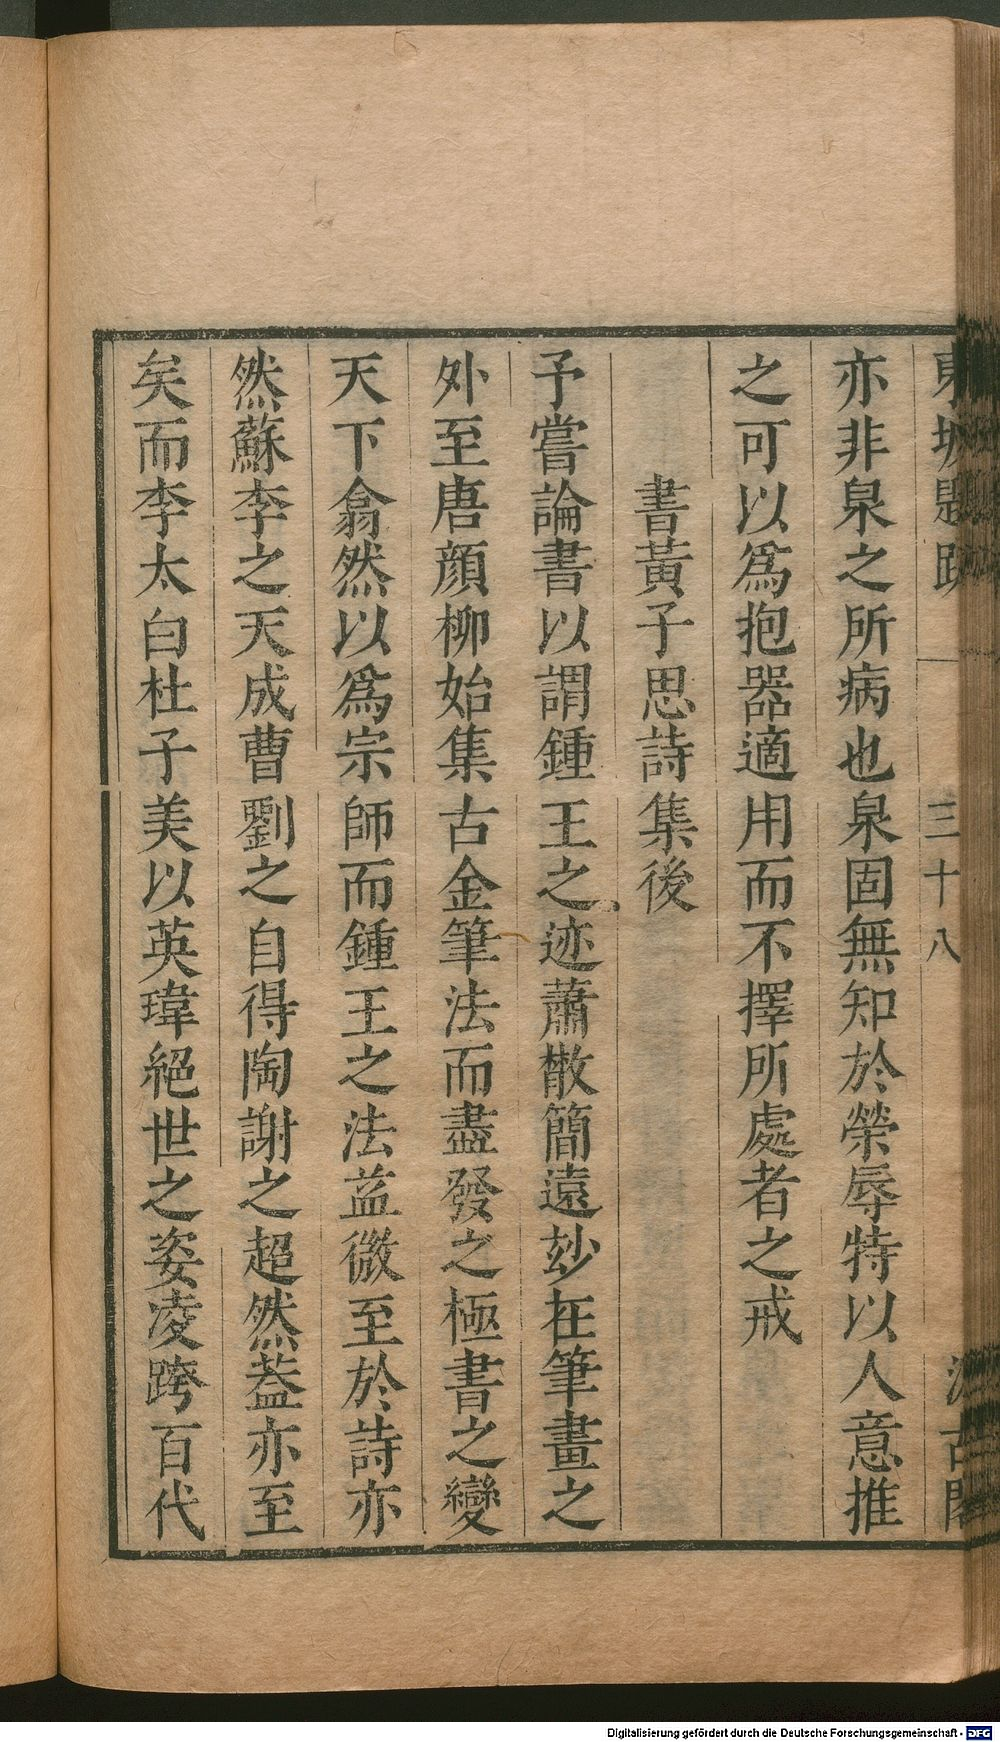 東坡題跋 三十八 汲古閣
亦非泉之所病也泉固無知於榮辱特以人意推
之可以爲抱器適用而不擇所處者之戒
書黃子思詩集後
予嘗論書以謂鍾王之迹蕭散簡遠玅在筆畫之
外至唐顔柳始集古金筆法而盡發之極書之變
天下翕然以爲宗師而鍾王之法益微至於詩亦
然蘇李之天成曹劉之自得陶謝之超然葢亦至
矣而李太白杜子美以英瑋絕世之姿凌跨百代
Digitalisierung gefördert durch die Deutsche Forschungsgemeinschaft - DFG